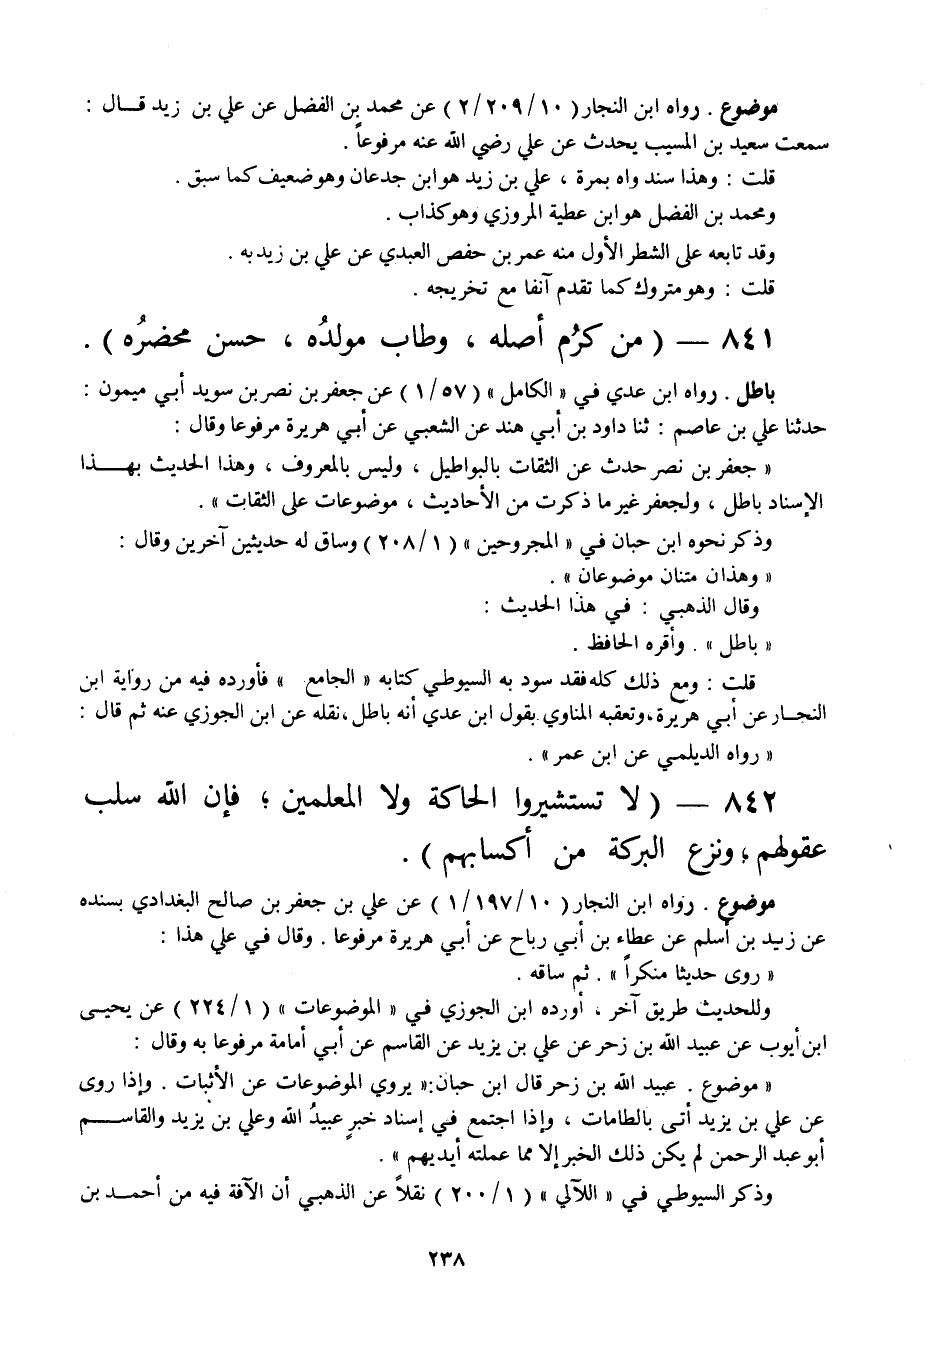 موضوع . رواه ابن النجار ( ١٠ / ٢٠٩ / ٢ ) عن محمد بن الفضل عن علي بن زيد قـال :
سمعت سعيد بن المسيب يحدث عن علي رضي الله عنه مرفوعاً .
قلت : وهذا سند واه بمرة ، علي بن زيد هو ابن جدعان وهو ضعيف كما سبق .
ومحمد بن الفضل هو ابن عطية المروزي وهو كذاب .
وقد تابعه على الشطر الأول منه عمر بن حفص العبدي عن علي بن زيد به .
قلت : وهو متروك كما تقدم آنفا مع تخريجه .
٨٤١ — ( من كرُم أصله ، وطاب مولدُه ، حسن محضرُه ) .
باطل . رواه ابن عدي في « الكامل » ( ٥٧ / ١ ) عن جعفر بن نصر بن سويد أبي ميمون :
حدثنا علي بن عاصم : ثنا داود بن أبي هند عن الشعبي عن أبي هريرة مرفوعا وقال :
« جعفر بن نصر حدث عن الثقات بالبواطيل ، وليس بالمعروف ، وهذا الحديث بهـــذا
الإسناد باطل ، ولجعفر غير ما ذكرت من الأحاديث ، موضوعات على الثقات » .
وذكر نحوه ابن حبان في « المجروحين » ( ١ / ٢٠٨ ) وساق له حديثين آخرين وقال :
« وهذان متنان موضوعان » .
وقال الذهبي : في هذا الحديث :
« باطل » . وأقره الحافظ .
قلت : ومع ذلك كله فقد سود به السيوطي كتابه « الجامع » فأورده فيه من رواية ابن
النجـار عن أبي هريرة ، وتعقبه المناوي بقول ابن عدي أنه باطل ، نقله عن ابن الجوزي عنه ثم قال :
« رواه الديلمي عن ابن عمر » .
٨٤٢ — ( لا تستشيروا الحاكة ولا المعلمين ؛ فإن الله سلب
عقولهم ، ونزع البركة من أكسابهم ) .
موضوع . رواه ابن النجار ( ١٠ / ١٩٧ / ١ ) عن علي بن جعفر بن صالح البغدادي بسنده
عن زيد بن أسلم عن عطاء بن أبي رباح عن أبي هريرة مرفوعا . وقال في علي هذا :
« روى حديثا منكراً » . ثم ساقه .
وللحديث طريق آخر ، أورده ابن الجوزي في « الموضوعات » ( ١ / ٢٢٤ ) عن يحيـى
ابن أيوب عن عبيد الله بن زحر عن علي بن يزيد عن القاسم عن أبي أمامة مرفوعا به وقال :
« موضوع . عبيد الله بن زحر قال ابن حبان : « يروي الموضوعات عن الأثبات . وإذا روى
عن علي بن يزيد أتى بالطامات ، وإذا اجتمع في إسناد خبرٍ عبيدُ الله وعلي بن يزيد والقاســـم
أبو عبد الرحمن لم يكن ذلك الخبر إلا مما عملته أيديهم » .
وذكر السيوطي في « اللآلي » ( ١ / ٢٠٠ ) نقلاً عن الذهبي أن الآفة فيه من أحمـد بن
٢٣٨